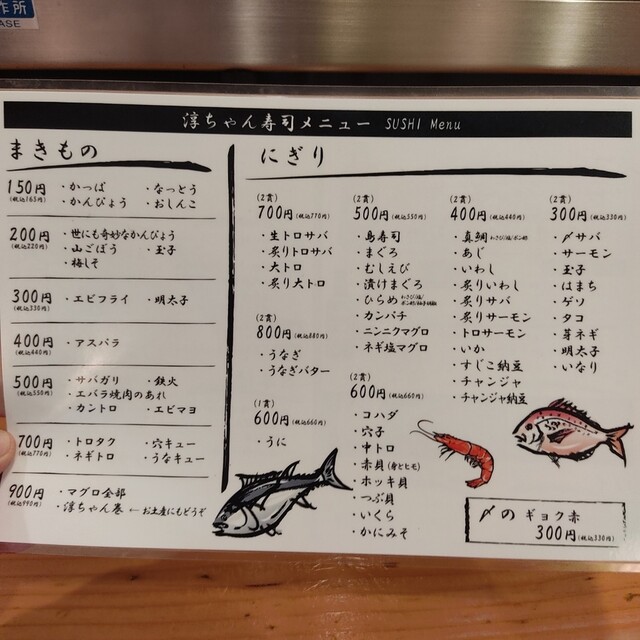 作所
ASE
淳ちゃん寿司メニュー SUSHI Menu
まきもの
150円 (税込165円)
・かっぱ ・なっとう
・かんぴょう ・おしんこ
200円 (税込220円)
・世にも奇妙なかんぴょう
・山ごぼう ・玉子
・梅しそ
300円 (税込330円)
・エビフライ ・明太子
400円 (税込440円)
・アスパラ
500円 (税込550円)
・サバガリ ・鉄火
・エバラ焼肉のあれ
・カントロ ・エビマヨ
700円 (税込770円)
・トロタク ・穴キュー
・ネギトロ ・うなキュー
900円 (税込990円)
・マグロ全部
・淳ちゃん巻 ← お土産にもどうぞ
にぎり
(2貫)
700円 (税込770円)
・生トロサバ
・炙りトロサバ
・大トロ
・炙り大トロ
(2貫)
800円 (税込880円)
・うなぎ
・うなぎバター
(1貫)
600円 (税込660円)
・うに
(2貫)
500円 (税込550円)
・島寿司
・まぐろ
・むしえび
・漬けまぐろ
・ひらめ
・カンパチ
・ニンニクマグロ
・ネギ塩マグロ
(2貫)
600円 (税込660円)
・コハダ
・穴子
・中トロ
・赤貝 (身とヒモ)
・ホッキ貝
・つぶ貝
・いくら
・かにみそ
(2貫)
400円 (税込440円)
・真鯛
・あじ
・いわし
・炙りいわし
・炙りサバ
・炙りサーモン
・トロサーモン
・いか
・すじこ納豆
・チャンジャ
・チャンジャ納豆
(2貫)
300円 (税込330円)
・〆サバ
・サーモン
・玉子
・はまち
・ゲソ
・タコ
・芽ネギ
・明太子
・いなり
〆の ギョク赤
300円 (税込330円)